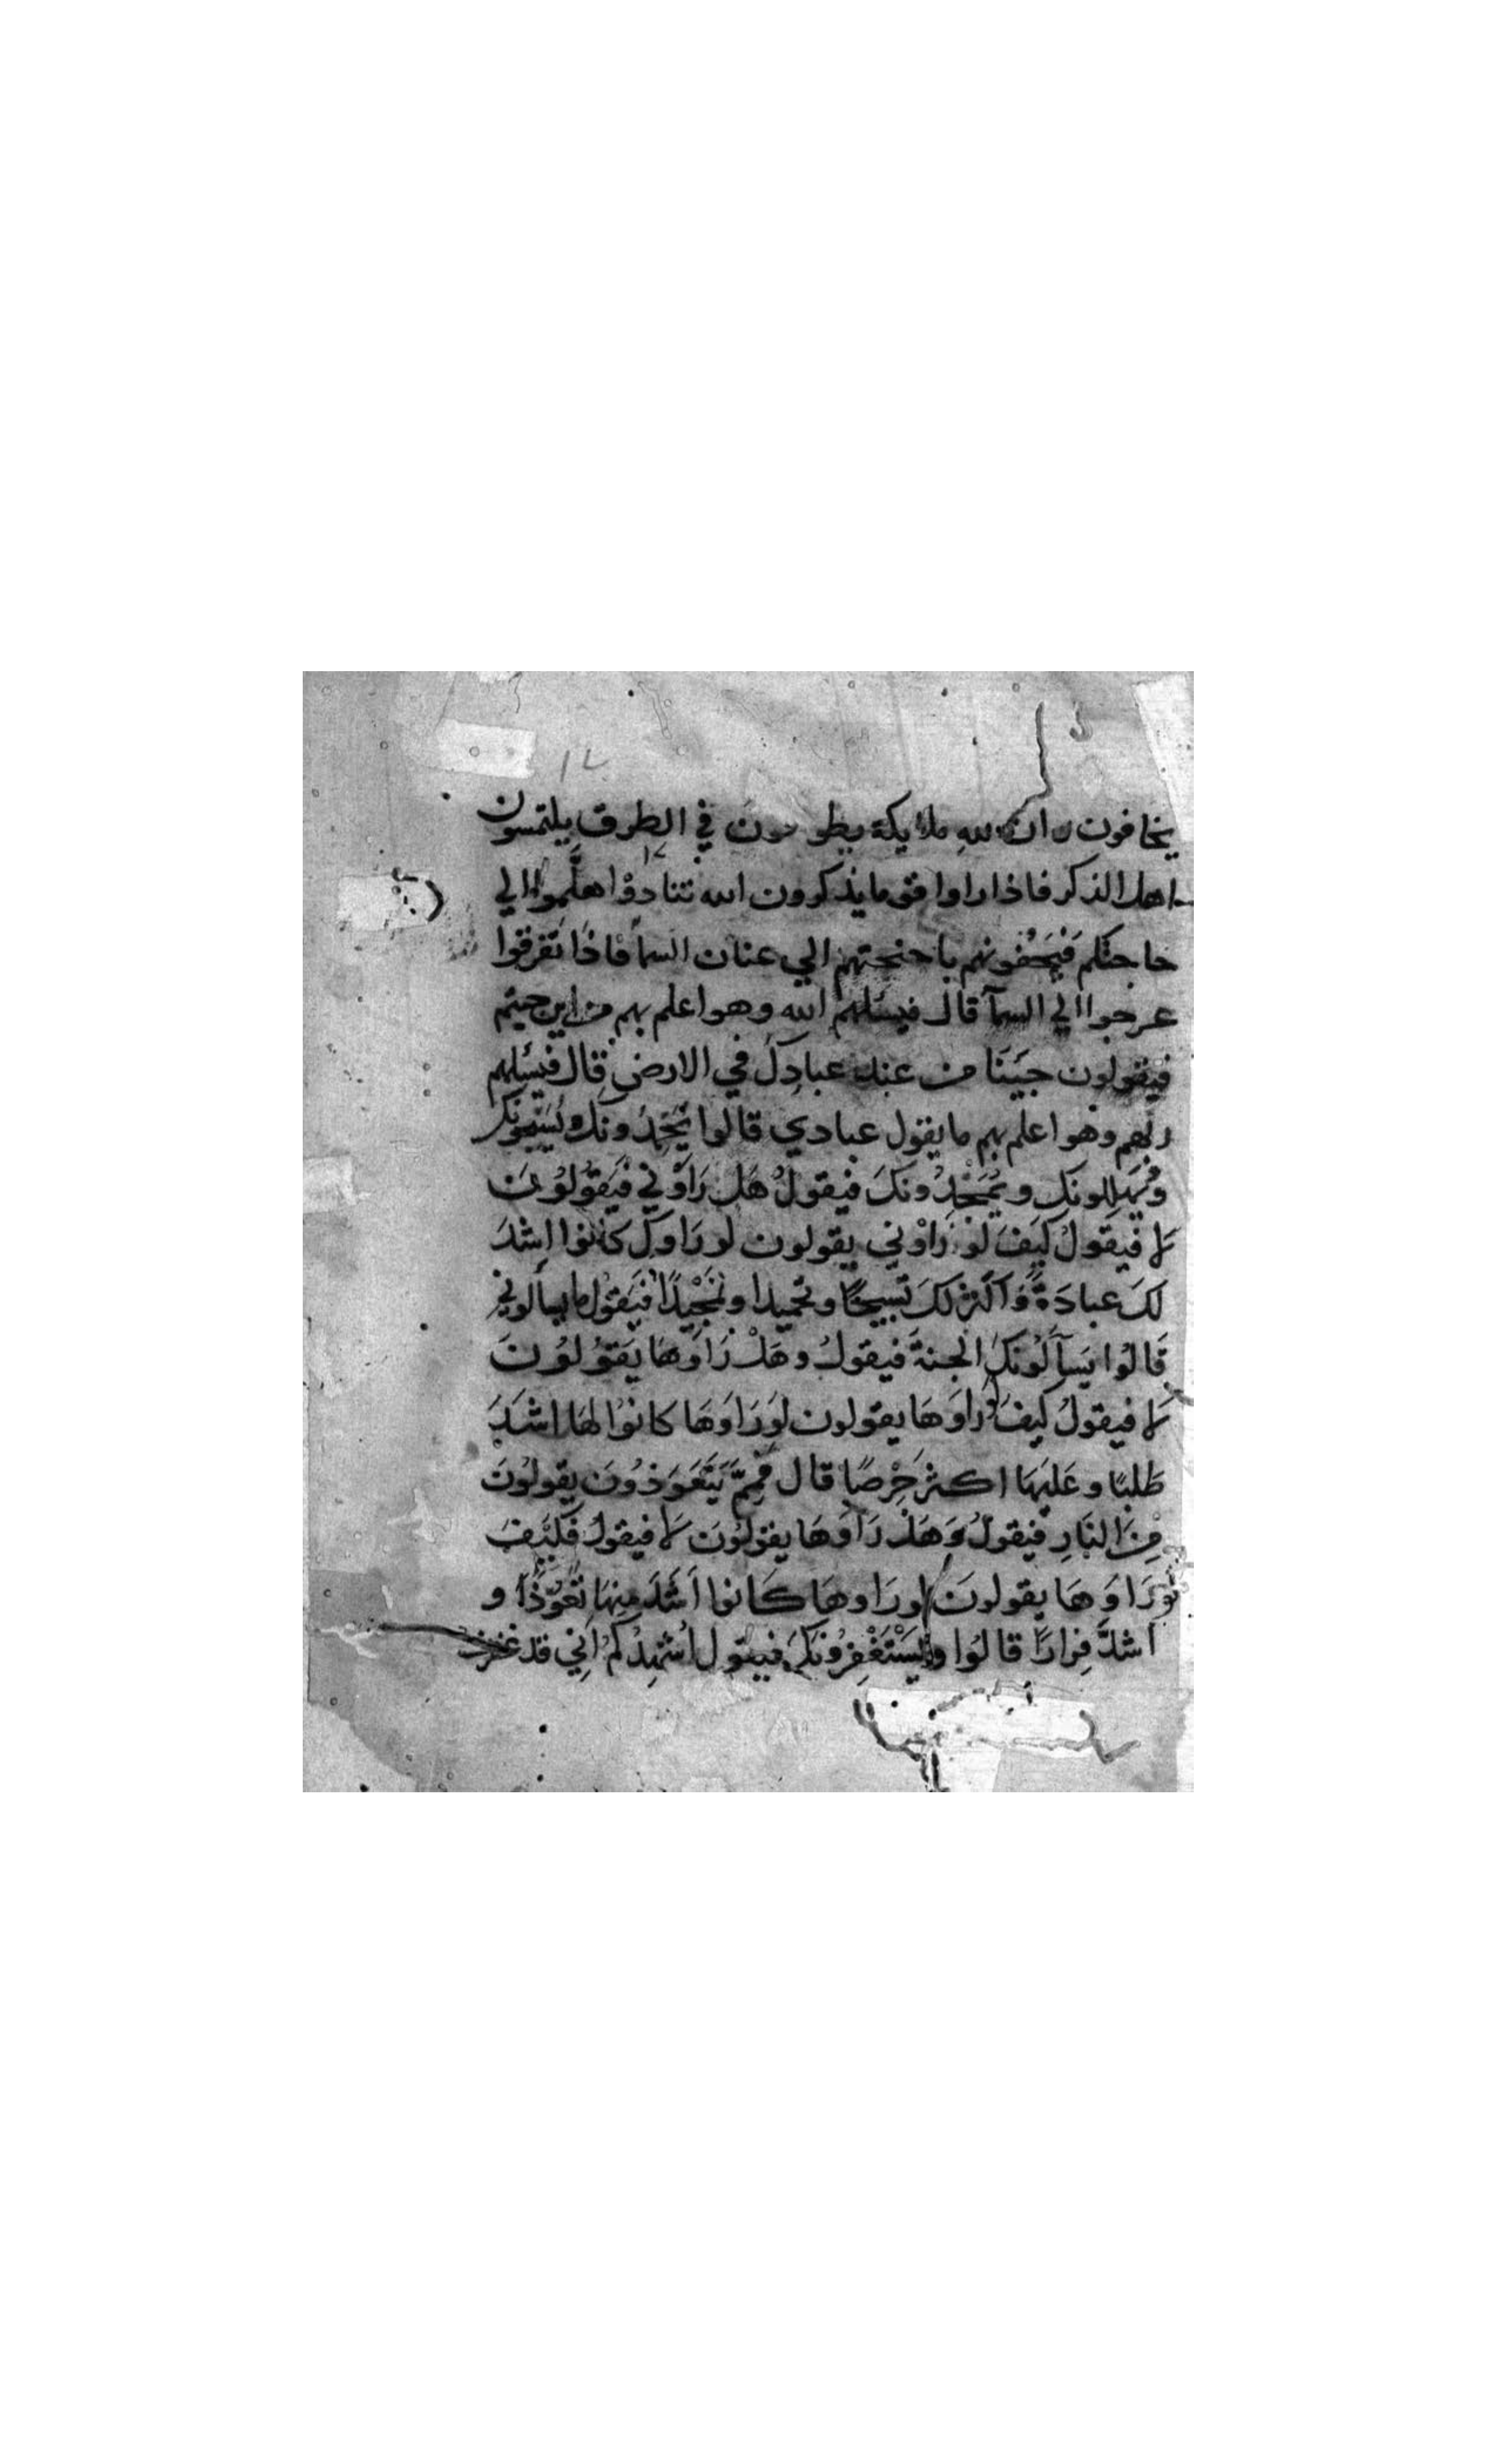 يخافون ان لله ملايكة يطوفون في الطرق يلتمسون
اهل الذكر فاذا راوا قوما يذكرون الله تنادوْا هلَّموا الي
حاجتكم فيَحُفونهم باجنحتهم الي عنان السمآ فاذا تفرقوا
عرجوا الي السمآ قال فيسئلهم الله وهو اعلم بهم من اين جيتم
فيقولون جيَنَا من عند عبادِكَ في الارض قال فيسئلهم
ربهم وهو اعلم بهم ما يقول عبادي قالوا يَحْمِدُونَكَ ويُسَبّحونكَ
ويُهَللونك ويُمَجِّدُونكَ فيقولُ هَل رَاوْني فَيَقُولُونَ
لا فيقولُ كيَفَ لَوْ رَاوْني يقولون لو رَاوكَ كانوا اشدَ
لكَ عبادَةً وَاكثرَ لكَ تسبيحًا وتحميدا وتمَجْيدًا فيَقوُل ما يسألوني
قَالوُا يَسآلُونكَ الجنةَ فيقولُ وهَلْ رَاوَها يَقوُلوُنَ
لا فيقولُ كيفَ لو رَاوَهَا يقولون لوَ رَاوَهَا كانوُا لهَا اشدَ
طَلبًا وعَليَهَا اكثرَ حِرْصًا قال فَمِمَّ يَتَعَوَذوُنَ يقولوُنَ
مِنَ النَارِ فيقولُ وَهَلْ رَاوَهَا يقولوُنَ لا فيقولُ فكَيَفَ
لَوْ رَاوَهَا يقولونَ لو رَاوهَا كَانوا اشَدَ مِنهَا تَعَوّذًا و
اشدَّ فِرارًا قالوُا ويَسْتَغْفِرُونكَ فيقول اُشْهِدُكمُ انِي قد غفرتُ